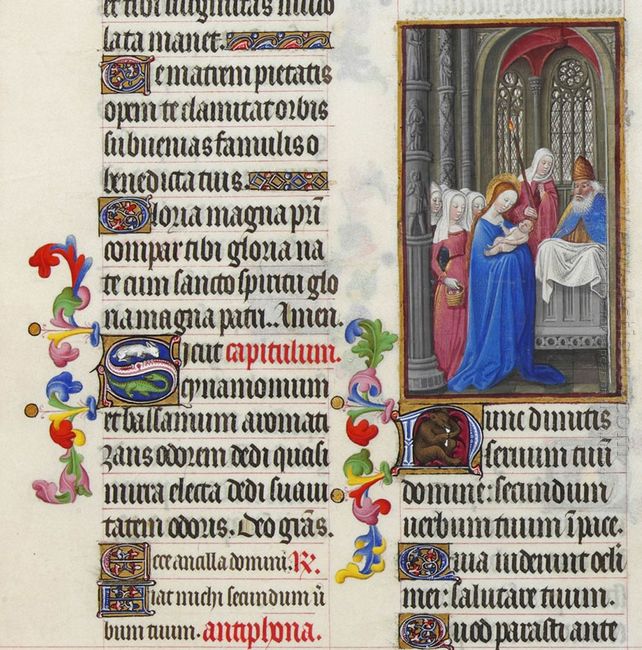 et tibi virginitas inuio
lata manet.
Te matrem pietatis
opem te clamitat orbis
subuenias famulis o
benedicta tuis.
Gloria magna pr̄i
compar tibi gloria na
te cum sancto spiritu glo
ria magna patri. Amen.
Sicut capitulum.
cynamomum
et balsamum aromati
zans odorem dedi quasi
mirra electa dedi suaui
tatem odoris. Deo grās.
Ecce ancilla domini. R.
Fiat michi secundum ū
bum tuum. antiphona.
Nunc dimitis
seruum tuū
domine: secundum
uerbum tuum ī pace.
Quia uiderunt oculi
mei: salutare tuum.
Quod parasti ante